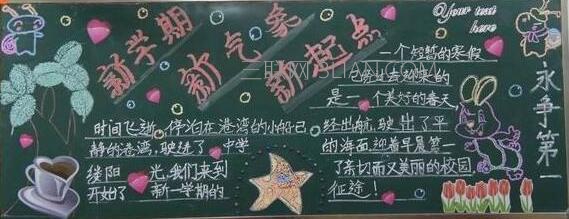 新学期
新气象
新起点
@Your text
here
一个短暂的寒假
它旁边去迎来的
是一个美好的春天
时间飞逝 停泊在港湾的小船已
静的港湾，驶进了 中学
缕阳 光，我们来到
开始了 新一学期的
经出航，驶出了平
的海面，迎着早晨第一
了亲切而又美丽的校园，
征途！
永争第一